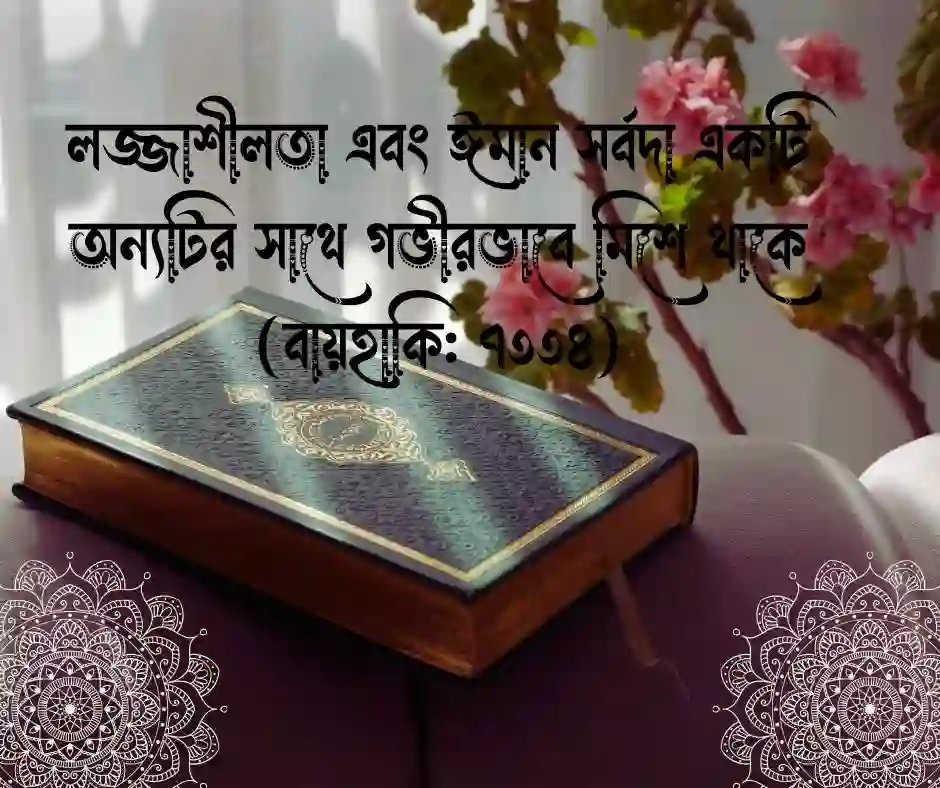 লজ্জাশীলতা এবং ঈমান সর্বদা একটি
অন্যটির সাথে গভীরভাবে মিশে থাকে
(বায়হাকি: ৭৩৩৪)